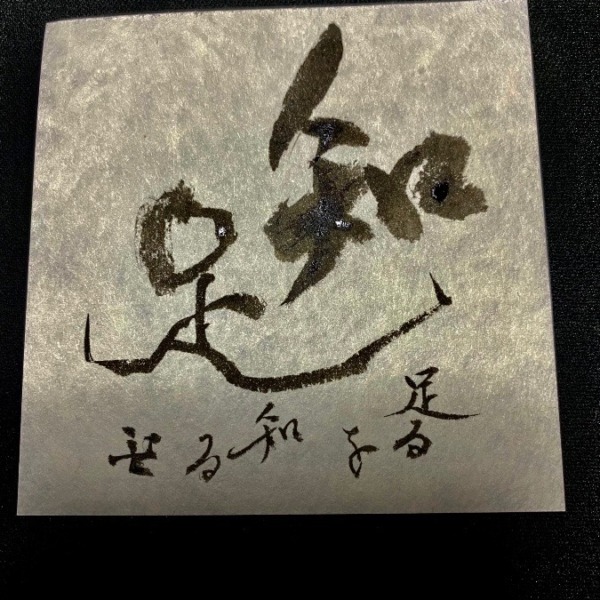 知足
足るを知る